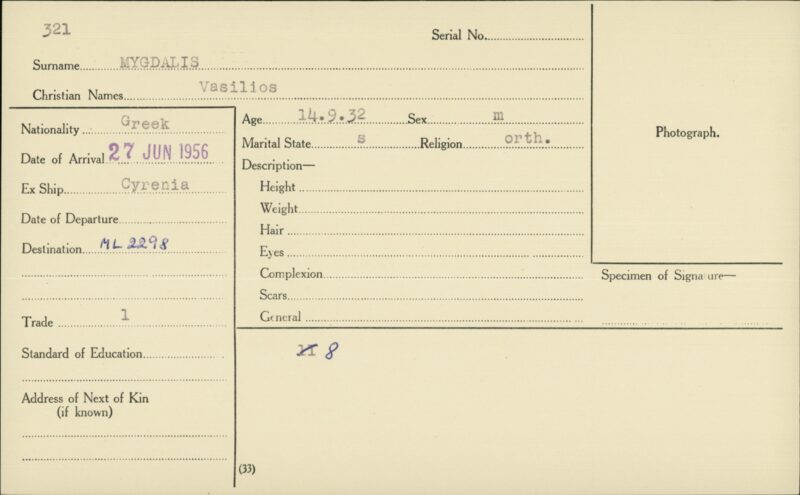 321
Serial No.
Surname MYGDALIS
Christian Names Vasilios
Nationality Greek
Date of Arrival 27 JUN 1956
Ex Ship Cyrenia
Date of Departure
Destination ML 2298
Trade 1
Standard of Education
Address of Next of Kin
(if known)
Age 14.9.32 Sex m
Marital State s Religion orth.
Description—
Height
Weight
Hair
Eyes
Complexion
Scars
General
8
(33)
Photograph.
Specimen of Signature—